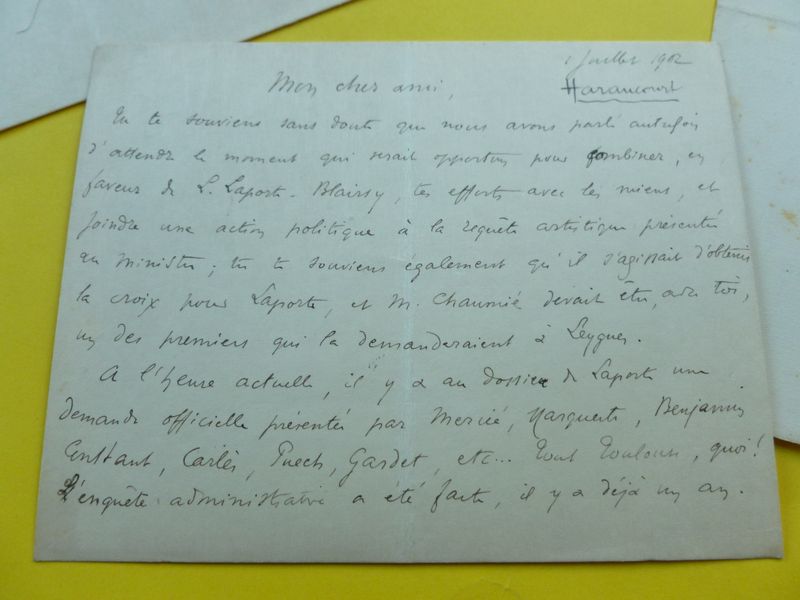 1 Juillet 1902
Haraucourt
Mon cher ami,
Tu te souviens sans doute que nous avons parlé autrefois
d'attendre le moment qui serait opportun pour combiner, en
faveur de L. Laporte-Blairsy, tes efforts avec les miens, et
joindre une action politique à la requête artistique présentée
au ministre ; tu te souviens également qu'il s'agissait d'obtenir
la croix pour Laporte, et M. Chaumié devait être, avec toi,
un des premiers qui la demanderaient à Leygues.
A l'heure actuelle, il y a au dossier de Laporte une
demande officielle présentée par Mercié, Marqueste, Benjamin
Constant, Carlès, Puech, Gardet, etc... Tout Toulouse, quoi !
L'enquête administrative a été faite, il y a déjà un an.